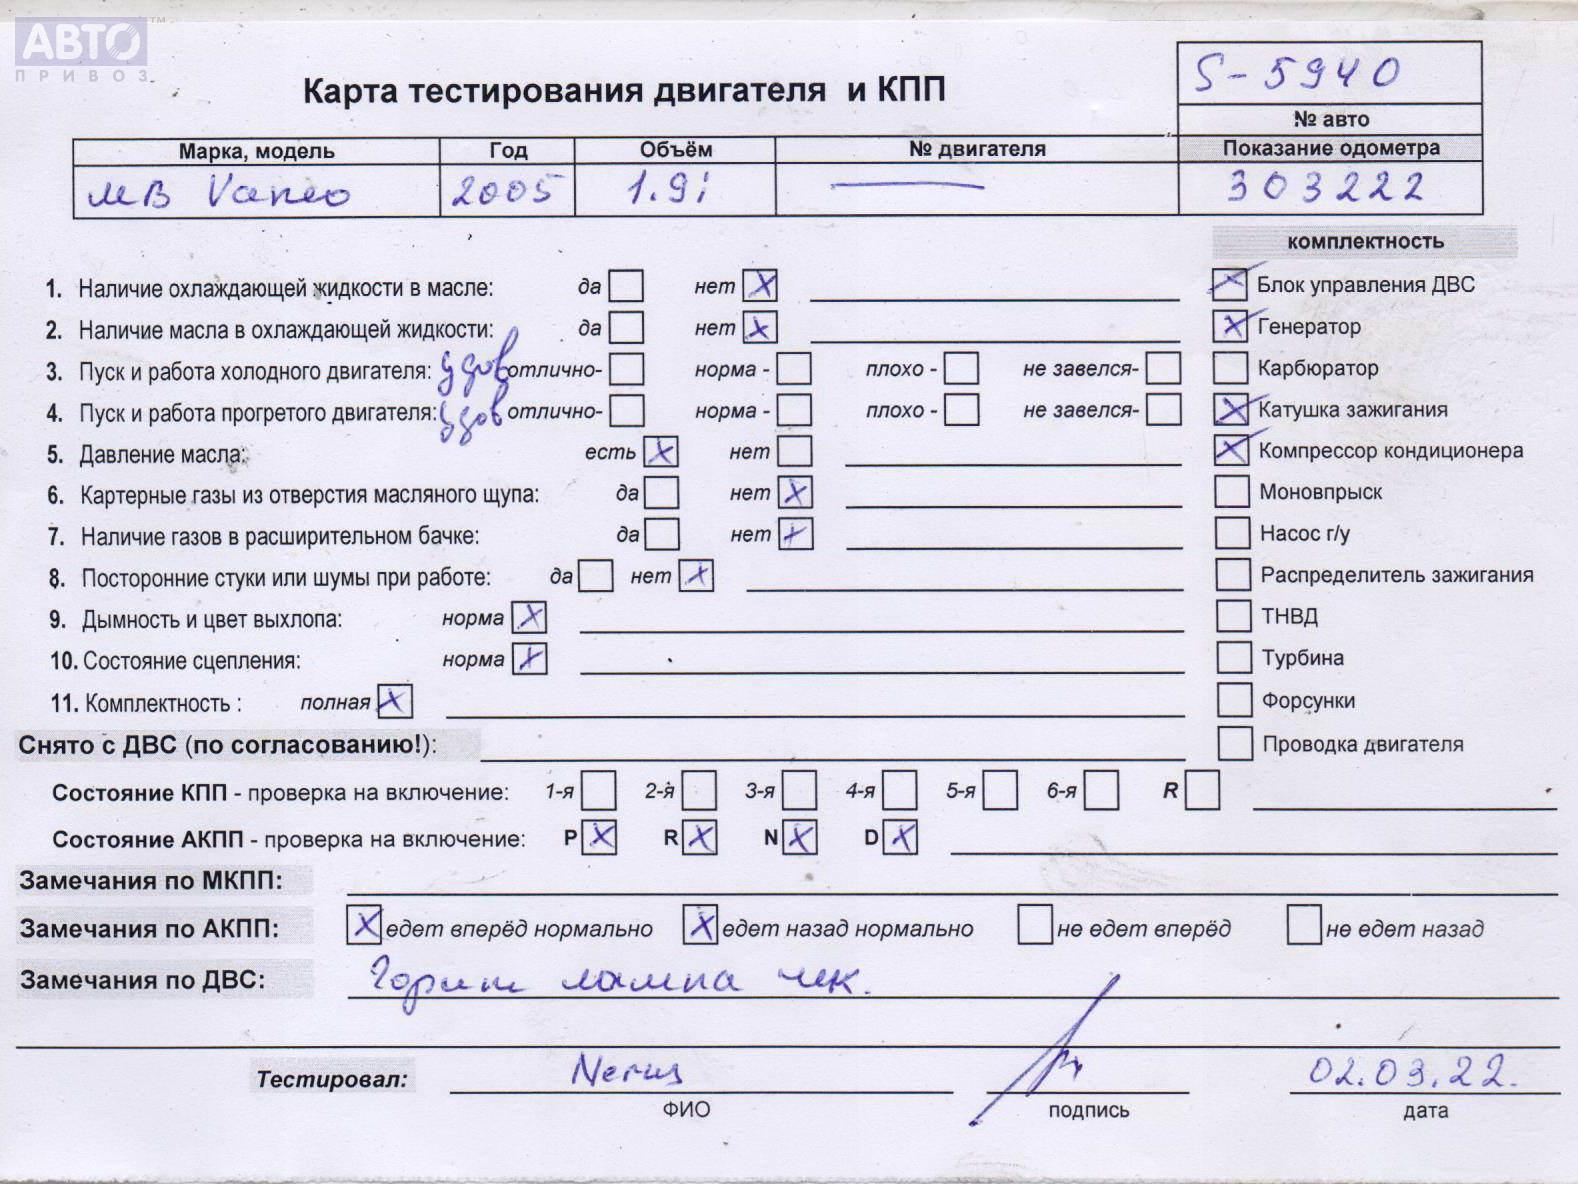 АВТО
ПРИВОЗ
Карта тестирования двигателя и КПП
S-5940
№ авто
Марка, модель Год Объём № двигателя Показание одометра
МВ Vaneo 2005 1.9i — 303222
комплектность
1. Наличие охлаждающей жидкости в масле: да нет X
2. Наличие масла в охлаждающей жидкости: да нет X
3. Пуск и работа холодного двигателя: удов отлично- норма - плохо - не завелся-
4. Пуск и работа прогретого двигателя: удов отлично- норма - плохо - не завелся-
5. Давление масла: есть X нет
6. Картерные газы из отверстия масляного щупа: да нет X
7. Наличие газов в расширительном бачке: да нет X
8. Посторонние стуки или шумы при работе: да нет X
9. Дымность и цвет выхлопа: норма X
10. Состояние сцепления: норма X
11. Комплектность : полная X
X Блок управления ДВС
X Генератор
Карбюратор
X Катушка зажигания
X Компрессор кондиционера
Моновпрыск
Насос г/у
Распределитель зажигания
ТНВД
Турбина
Форсунки
Проводка двигателя
Снято с ДВС (по согласованию!):
Состояние КПП - проверка на включение: 1-я 2-я 3-я 4-я 5-я 6-я R
Состояние АКПП - проверка на включение: P X R X N X D X
Замечания по МКПП:
Замечания по АКПП: X едет вперёд нормально X едет назад нормально не едет вперёд не едет назад
Замечания по ДВС: Горит лампа чек.
Тестировал: 02.03.22.
ФИО подпись дата